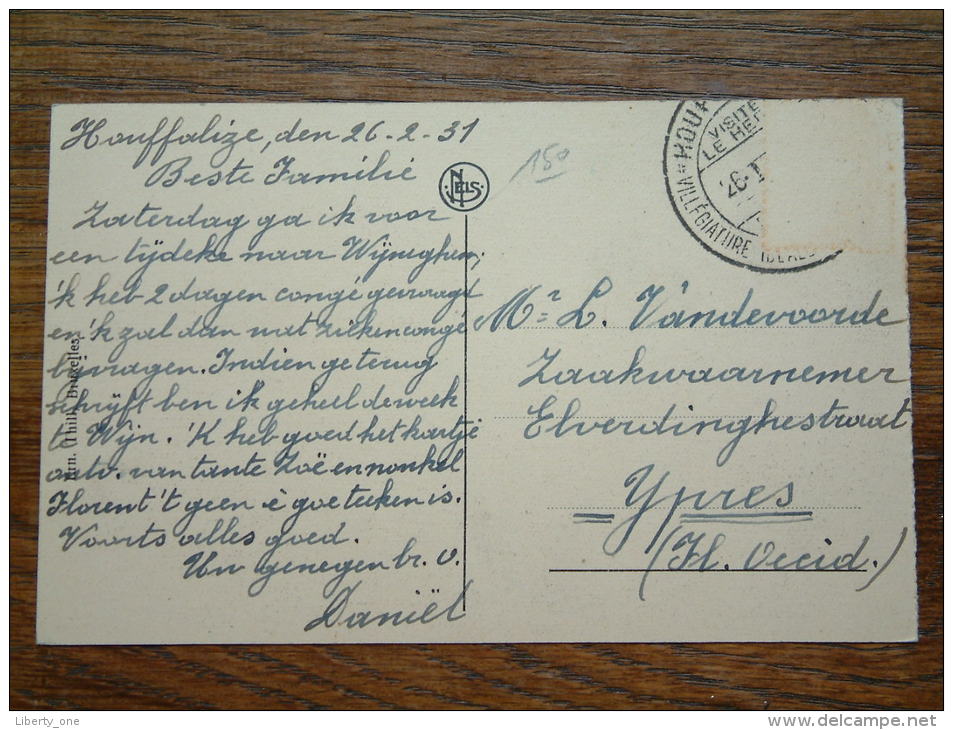 Houffalize, den 26-2-31
Beste Familie
Zaterdag ga ik voor
een tijdeke naar Wijneghem,
'k heb 2 dagen congé gevraagd
en 'k zal dan wat ziekencongé
bijvragen. Indien ge terug
schrijft ben ik geheel de week
te Wijn. 'K heb goed het kartje
ontv. van tante Zoë en nonkel
Florent 't geen è goe teeken is.
Voorts alles goed.
Uw genegen br. v.
Daniël
NELS
150
VISITE
LE HE
26
VILLÉGIATURE IDÉALE
HOU
Mr L. Vandevoorde
Zaakwaarnemer
Elverdinghestraat
Ypres
(Fl. Occid.)
Ern. Thill, Bruxelles
Liberty_one
http://www.delcampe.net